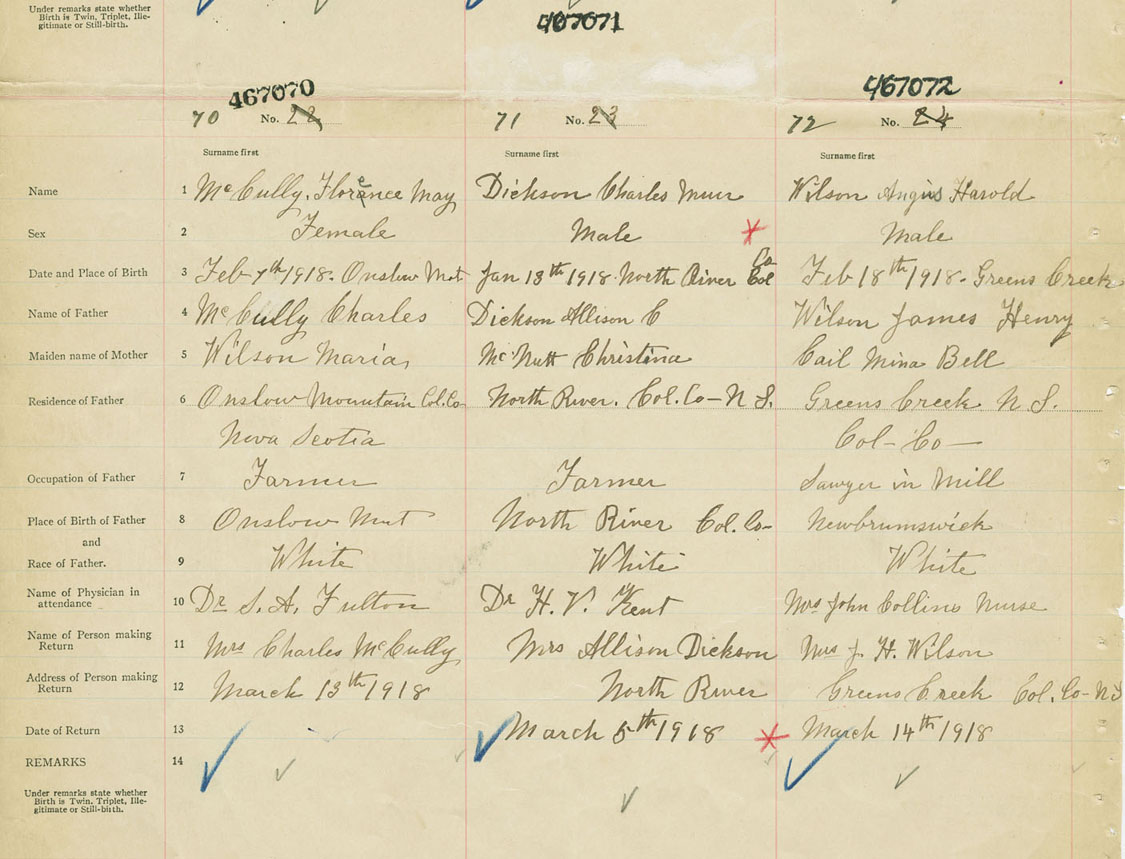 Under remarks state whether
Birth is Twin, Triplet, Ille-
gitimate or Still-birth.
467071
467070 467072
70 No. 22 71 No. 23 72 No. 24
Surname first Surname first Surname first
Name 1 McCully, Florence May Dickson Charles Muir Wilson Angus Harold
Sex 2 Female Male Male
Date and Place of Birth 3 Feb 7th 1918. Onslow Mnt Jan 13th 1918 North River Col Co Feb 18th 1918. Greens Creek
Name of Father 4 McCully Charles Dickson Allison C Wilson James Henry
Maiden name of Mother 5 Wilson Maria, McNutt Christina Cail Mina Bell
Residence of Father 6 Onslow Mountain Col. Co North River. Col. Co - N S. Greens Creek N S.
Nova Scotia Col - Co -
Occupation of Father 7 Farmer Farmer Sawyer in Mill
Place of Birth of Father 8 Onslow Mnt North River Col. Co - Newbrumswick
and
Race of Father. 9 White White White
Name of Physician in
attendance 10 Dr S. A. Fulton Dr H. V. Kent Mrs John Collins Nurse
Name of Person making
Return 11 Mrs Charles McCully Mrs Allison Dickson Mrs J. H. Wilson
Address of Person making
Return 12 March 13th 1918 North River Greens Creek Col. Co - N S
Date of Return 13 March 5th 1918 March 14th 1918
REMARKS 14
Under remarks state whether
Birth is Twin, Triplet, Ille-
gitimate or Still-birth.